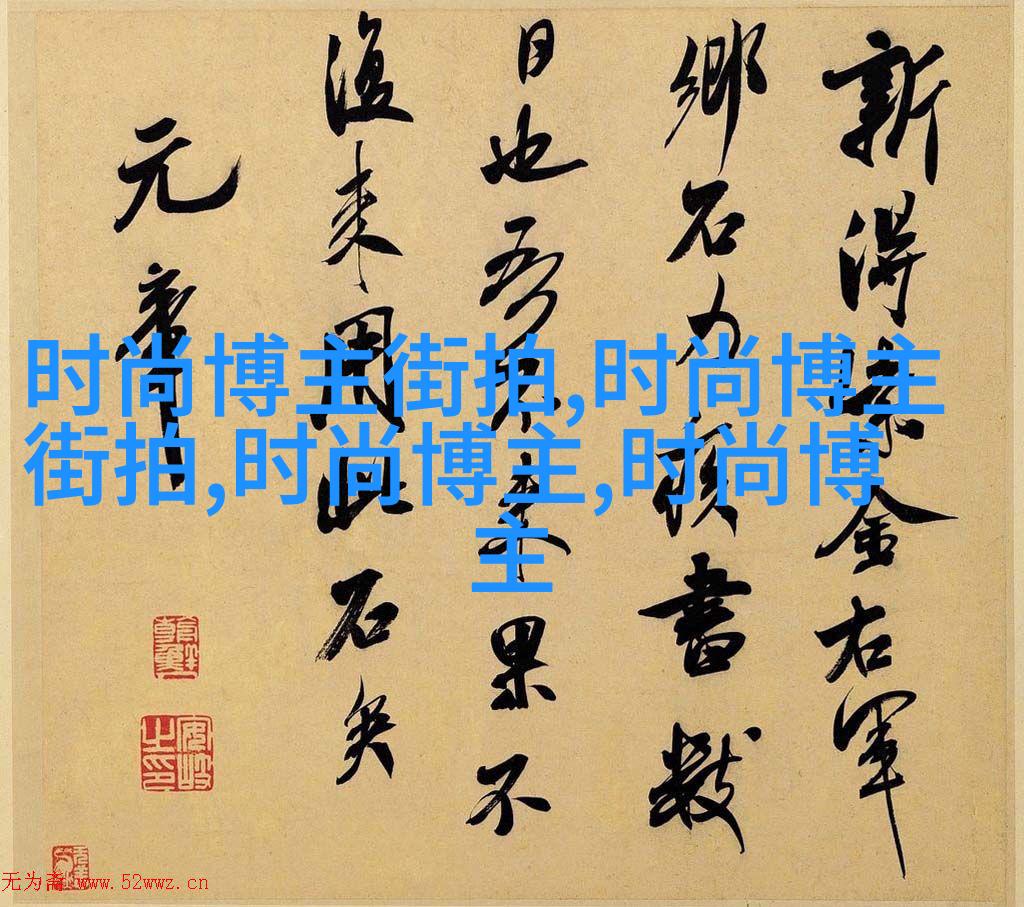 新得紫金右軍
鄉石力疾書數
日也吾不來果不
復來用此石矣
元章
时尚博主街拍,时尚博主
街拍,时尚博主,时尚博
主
无为斋 www.52wwz.cn